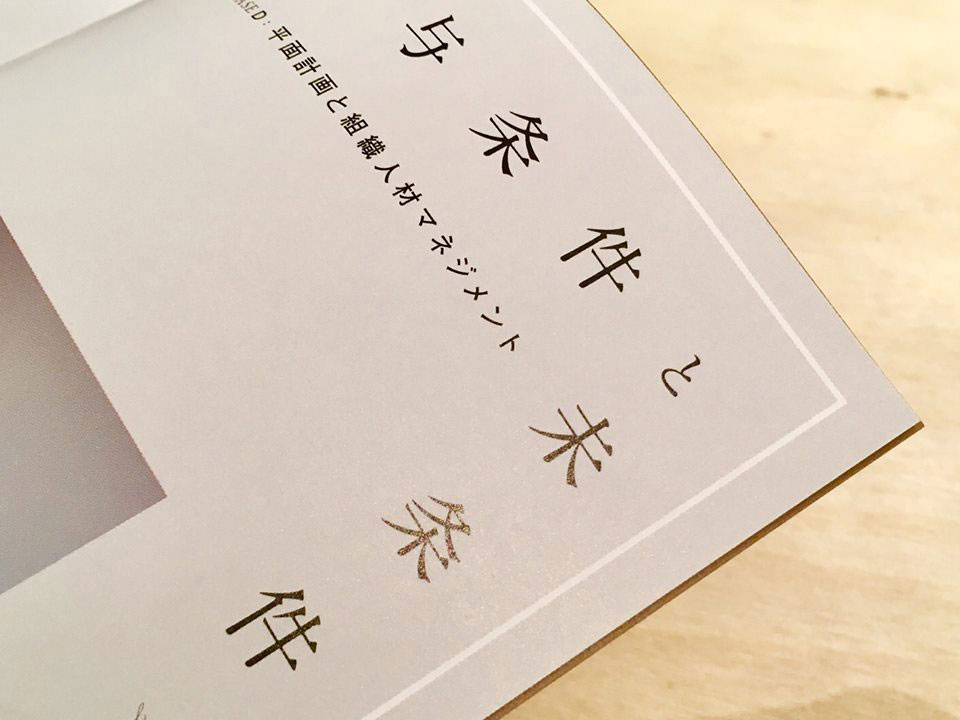 与条件と未条件
ASE D：平面計画と組織人材マネジメント